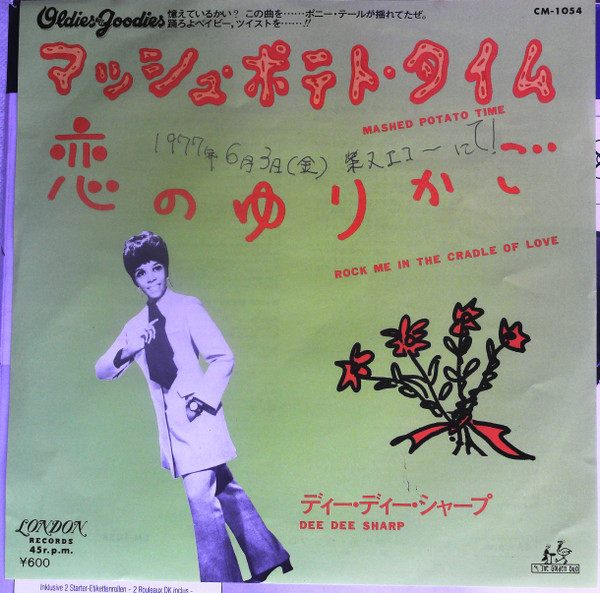 Oldies but Goodies
憶えているかい? この曲を……ポニー・テールが揺れてたぜ。
踊ろよベイビー,ツイストを……!!
CM-1054
マッシュ・ポテト・タイム
MASHED POTATO TIME
1977年6月3日(金)
にて!
恋のゆりかご
ROCK ME IN THE CRADLE OF LOVE
ディー・ディー・シャープ
DEE DEE SHARP
LONDON
RECORDS
45r.p.m.
¥600
The Golden Bird
Inklusive 2 Starter-Etikettenrollen - 2 Rouleaux DK inclus -